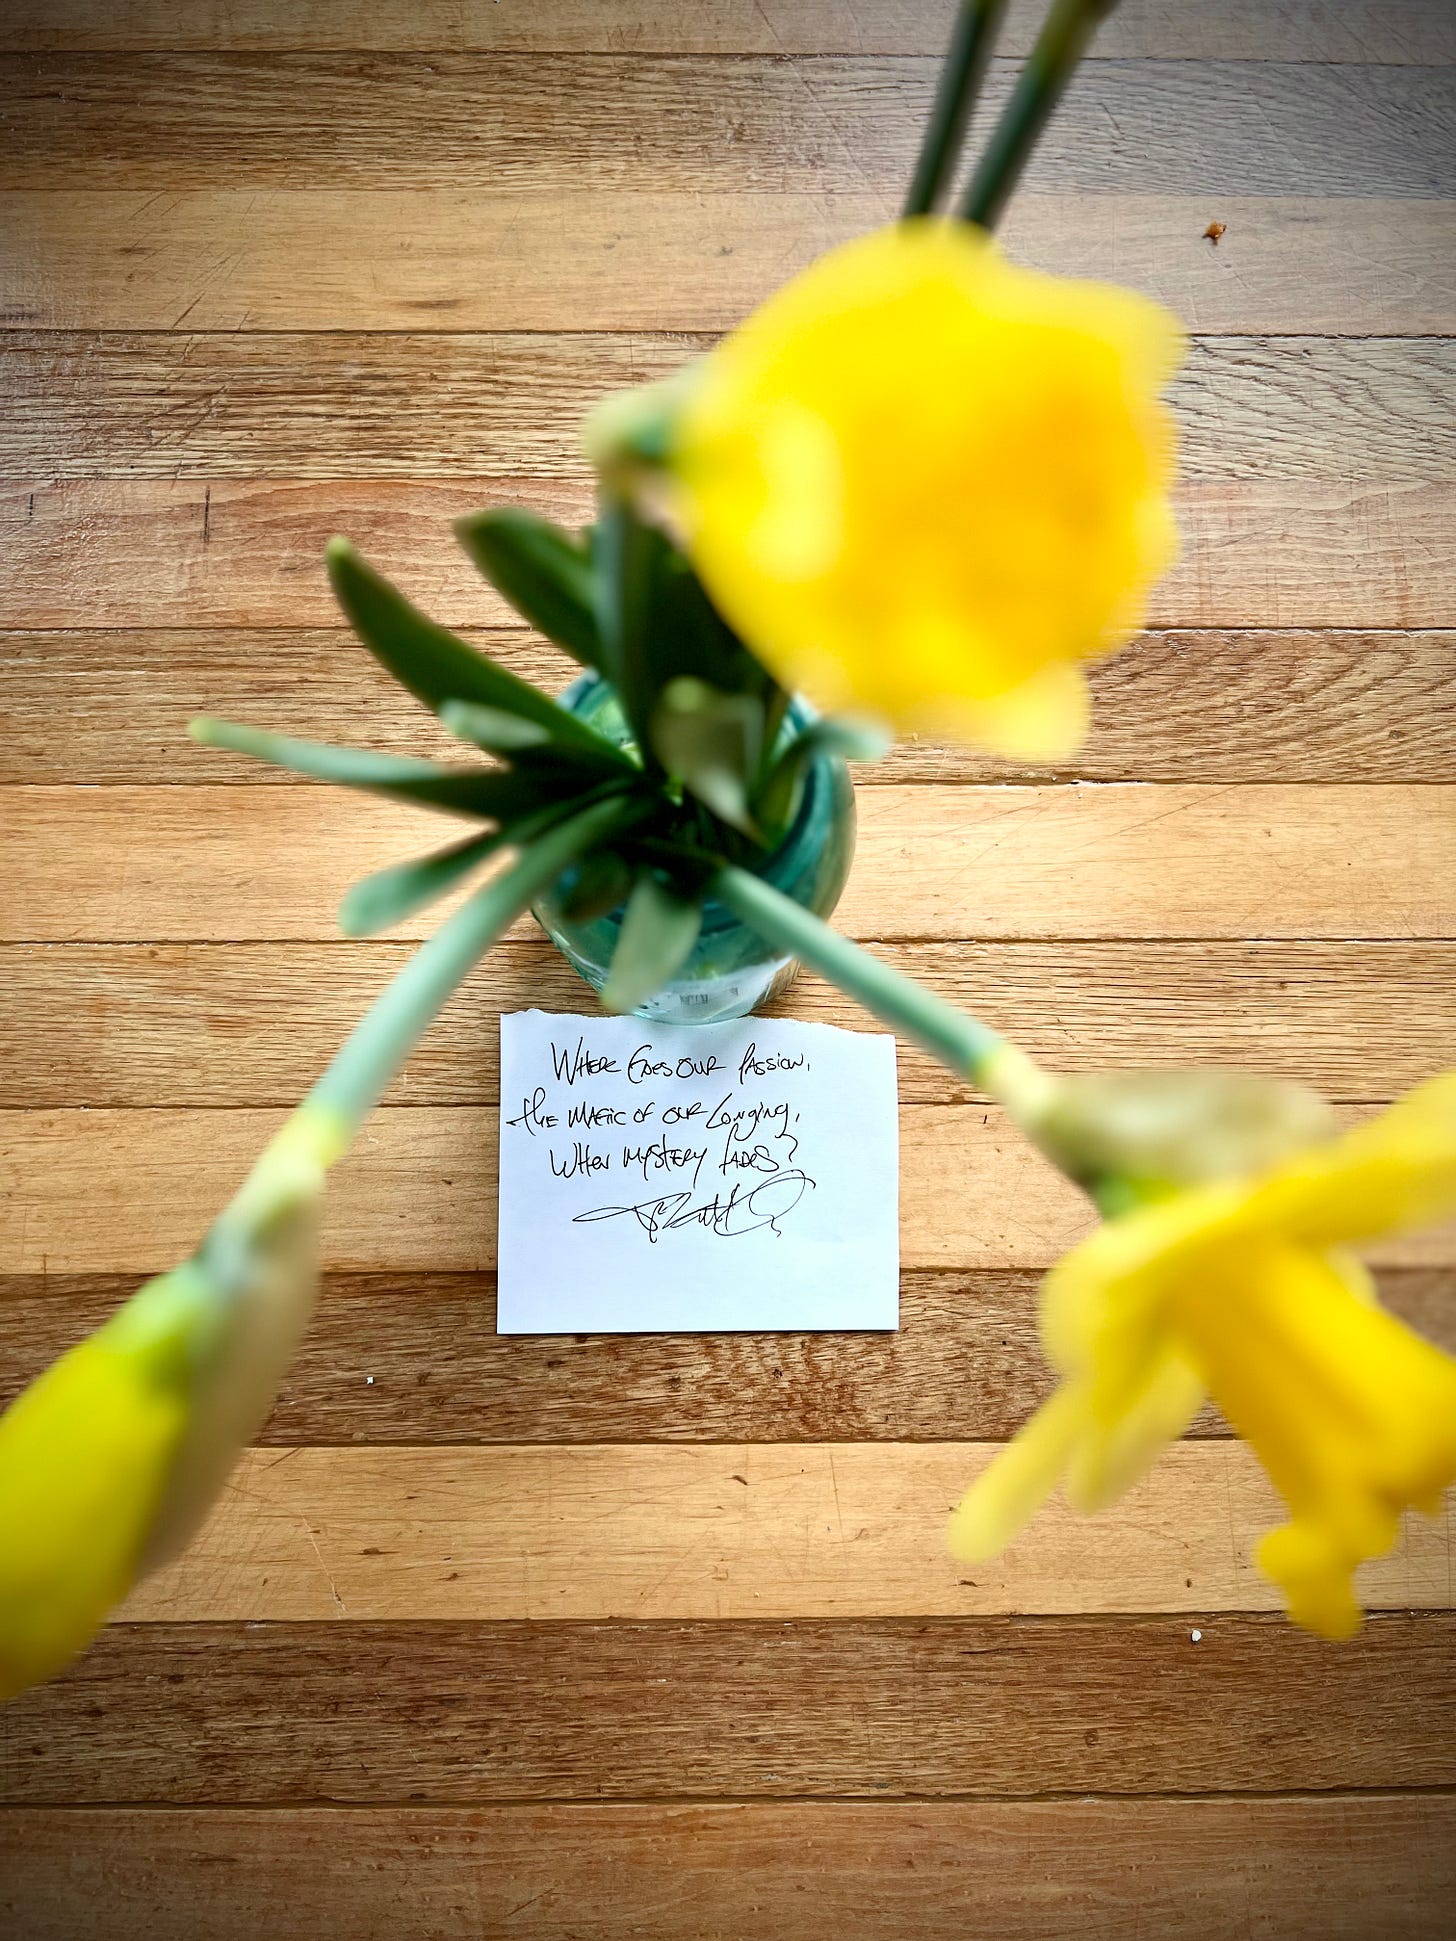 Where Goes our passion,
the magic of our longing,
when mystery fades?